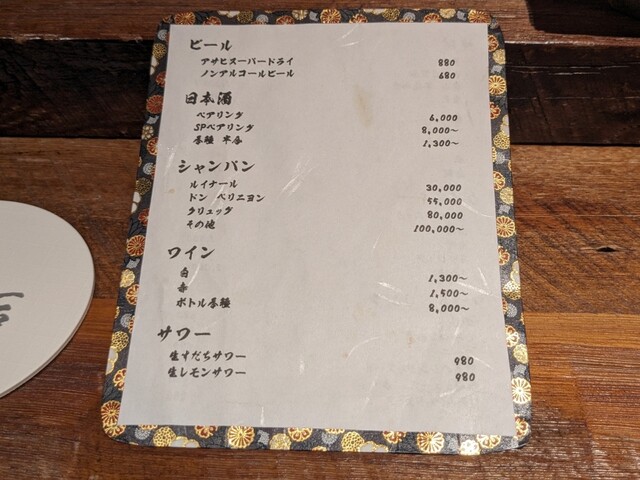 ビール
アサヒスーパードライ 880
ノンアルコールビール 680
日本酒
ペアリング 6,000
SPペアリング 8,000～
各種 半合 1,300～
シャンパン
ルイナール 30,000
ドン ペリニヨン 55,000
クリュッグ 80,000
その他 100,000～
ワイン
白 1,300～
赤 1,500～
ボトル各種 8,000～
サワー
生すだちサワー 980
生レモンサワー 980